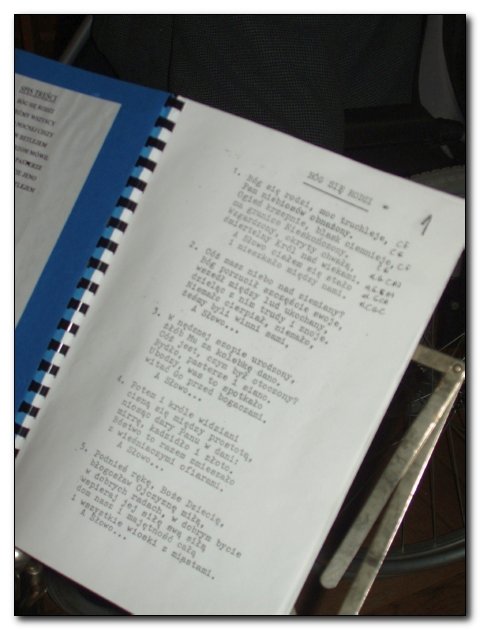 SPIS TREŚCI
BÓG SIĘ RODZI
WSZYSCY
BÓG SIĘ RODZI
1
1. Bóg się rodzi, moc truchleje, CF
Pan niebiosów obnażony, CG
Ogień krzepnie, blask ciemnieje, CF
ma granice Nieskończony. CG
Wzgardzony, okryty chwałą,
śmiertelny Król nad wiekami.
A Słowo Ciałem się stało
i mieszkało między nami.
2. Cóż masz niebo nad ziemiany?
Bóg porzucił szczęście swoje,
wszedł między lud ukochany,
dzieląc z nim trudy i znoje.
Niemało cierpiał, niemało,
żeśmy byli winni sami,
A Słowo...
3. W nędznej szopie urodzony,
żłób Mu za kolebkę dano.
Cóż jest, czym był otoczony?
Bydło, pasterze i siano.
Ubodzy, was to spotkało
witać Go przed bogaczami.
A Słowo...
4. Potem i króle widziani
cisną się między prostotą,
niosąc dary Panu w dani:
mirrę, kadzidło i złoto.
Bóstwo to razem zmieszało
z wieśniaczymi ofiarami.
A Słowo...
5. Podnieś rękę, Boże Dziecię,
błogosław Ojczyznę miłą,
w dobrych radach, w dobrym bycie
wspieraj jej siłę swą siłą
dom nasz i majętność całą
i wszystkie wioski z miastami.
A Słowo...